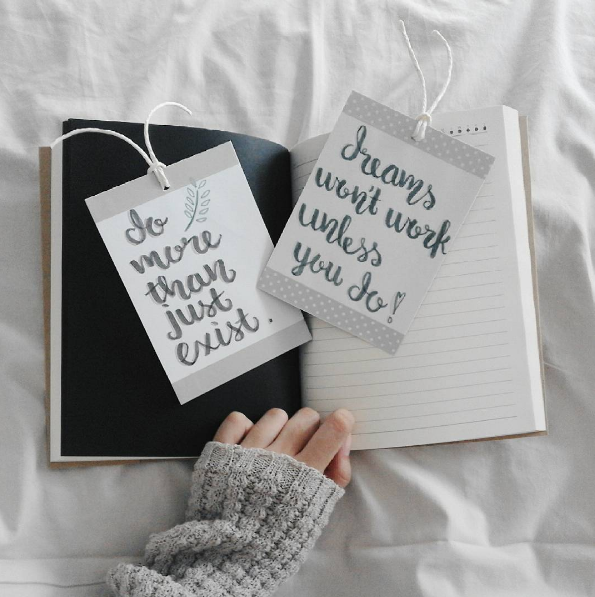 do
more
than
just
exist.
dreams
won't work
unless
you do!